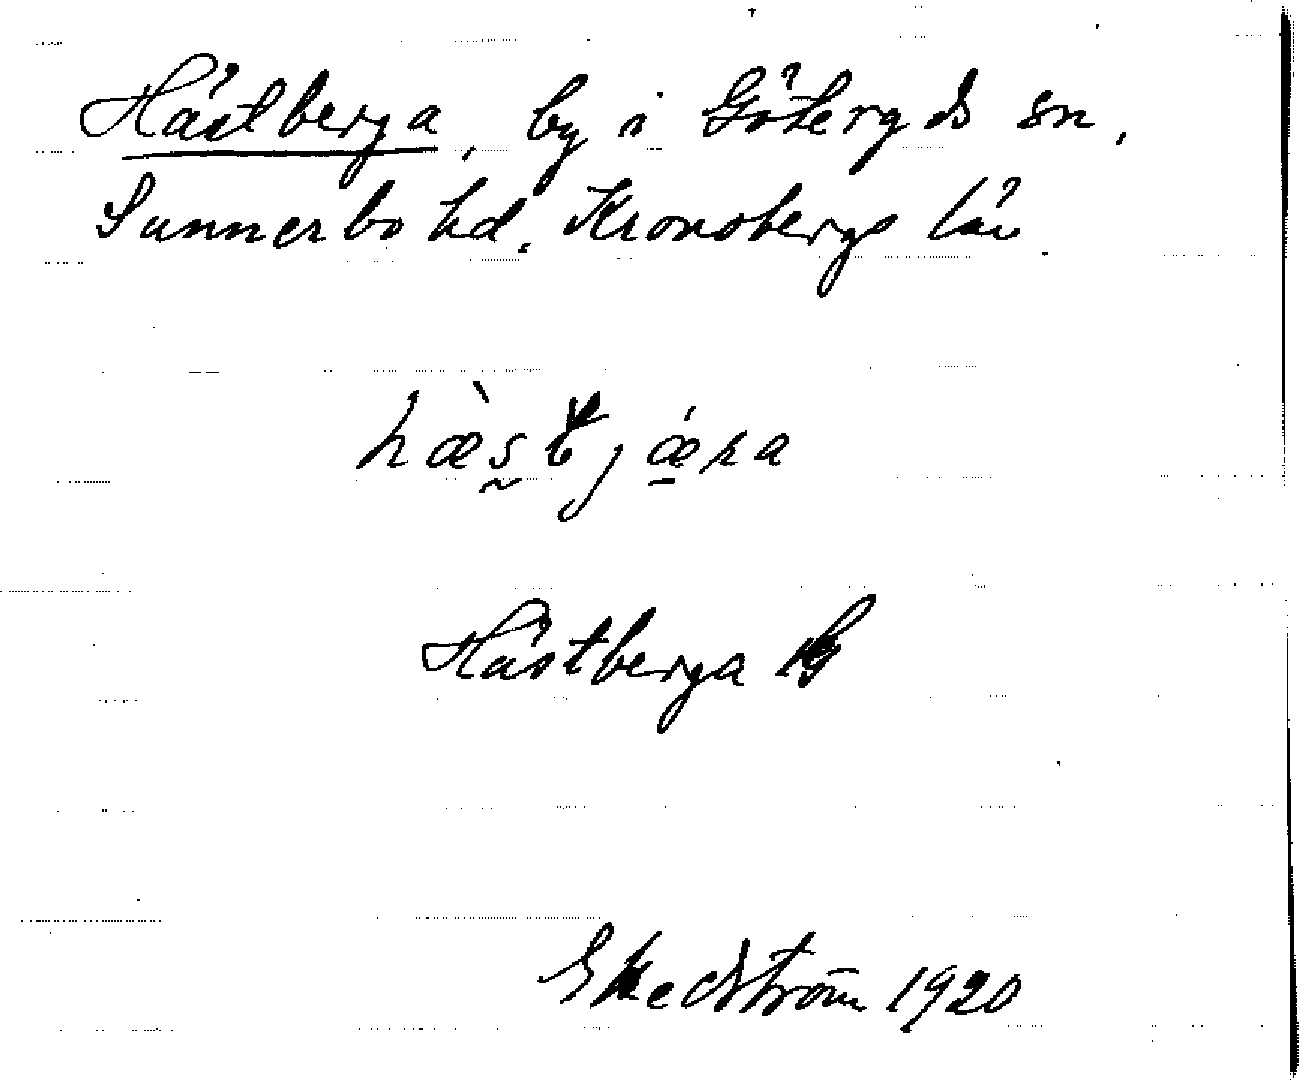 Hästberga, by i Göteryds sn,
Sunnerbo hd. Kronobergs län.
Hästberga
Skedström 1920